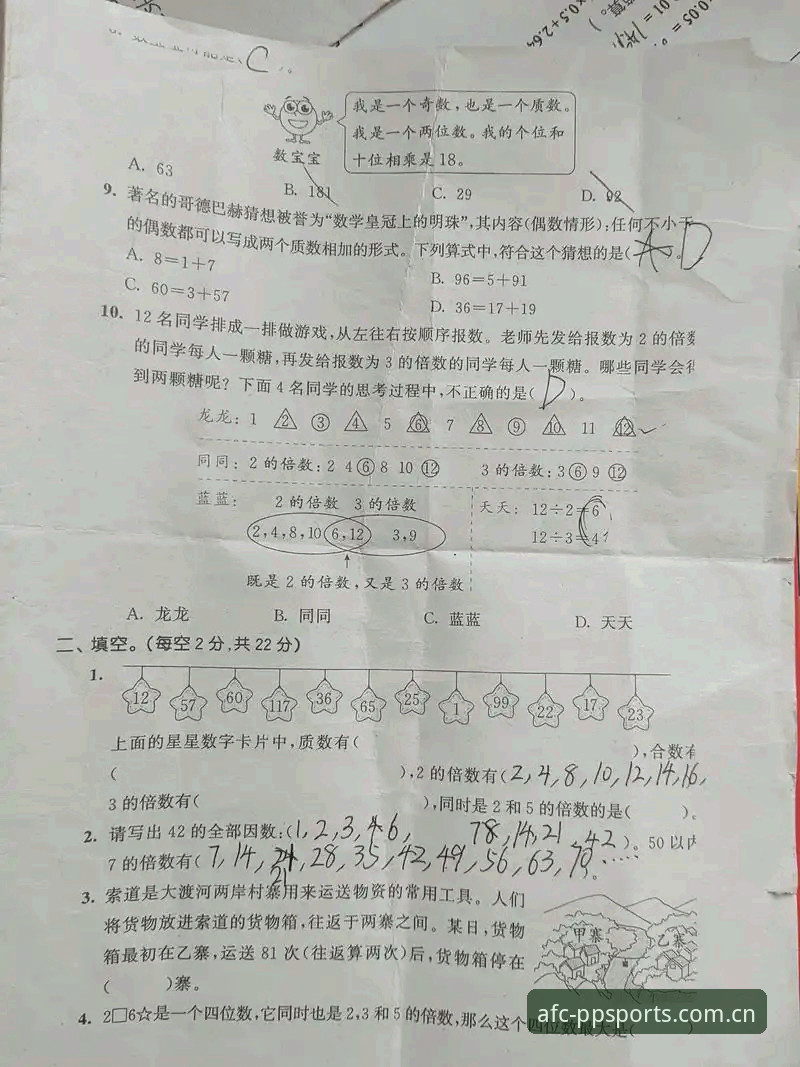 ×0.5+2.64
0.05=
C )。
我是一个奇数,也是一个质数。
我是一个两位数。我的个位和
十位相乘是18。
数宝宝
A. 63
B. 181
C. 29
D. 92
9. 著名的哥德巴赫猜想被誉为“数学皇冠上的明珠”,其内容(偶数情形):任何不小于
的偶数都可以写成两个质数相加的形式。下列算式中,符合这个猜想的是( A D )。
A. 8=1+7
B. 96=5+91
C. 60=3+57
D. 36=17+19
10. 12名同学排成一排做游戏,从左往右按顺序报数。老师先发给报数为2的倍数
的同学每人一颗糖,再发给报数为3的倍数的同学每人一颗糖。哪些同学会得
到两颗糖呢?下面4名同学的思考过程中,不正确的是( D )。
龙龙: 1 2 3 4 5 6 7 8 9 10 11 12
同同: 2的倍数: 2 4 ⑥ 8 10 ⑫ 3的倍数: 3 ⑥ 9 ⑫
蓝蓝: 2的倍数 3的倍数
2,4,8,10 6,12 3,9
既是2的倍数,又是3的倍数
天天: 12÷2=6
12÷3=4
A. 龙龙
B. 同同
C. 蓝蓝
D. 天天
二、填空。(每空2分,共22分)
1.
12 57 60 117 36 65 25 1 99 22 17 23
上面的星星数字卡片中,质数有( ),合数有
( ),2的倍数有(2,4,8,10,12,14,16,
3的倍数有( ),同时是2和5的倍数的是( )。
2. 请写出42的全部因数:(1,2,3,4 6, 7 8,14,21,42)。50以内
7的倍数有(7,14,21,28,35,42,49,56,63,70……
21
3. 索道是大渡河两岸村寨用来运送物资的常用工具。人们
将货物放进索道的货物箱,往返于两寨之间。某日,货物
箱最初在乙寨,运送81次(往返算两次)后,货物箱停在
( )寨。
甲寨
乙寨
4. 2□6☆是一个四位数,它同时也是2,3和5的倍数,那么这个四位数最大是( )
afc-ppsports.com.cn